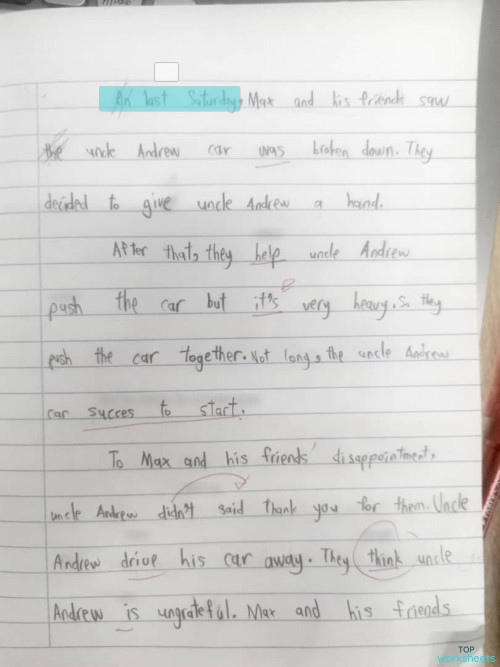 An last Saturday, Max and his friends saw
the uncle Andrew car was broken down. They
decided to give uncle Andrew a hand.
After that, they help uncle Andrew
push the car but it's very heavy. So they
push the car together. Not long, the uncle Andrew
car succes to start.
To Max and his friends' disappointment,
uncle Andrew didn't said thank you for them. Uncle
Andrew drive his car away. They think uncle
Andrew is ungrateful. Max and his friends
TOP
worksheets